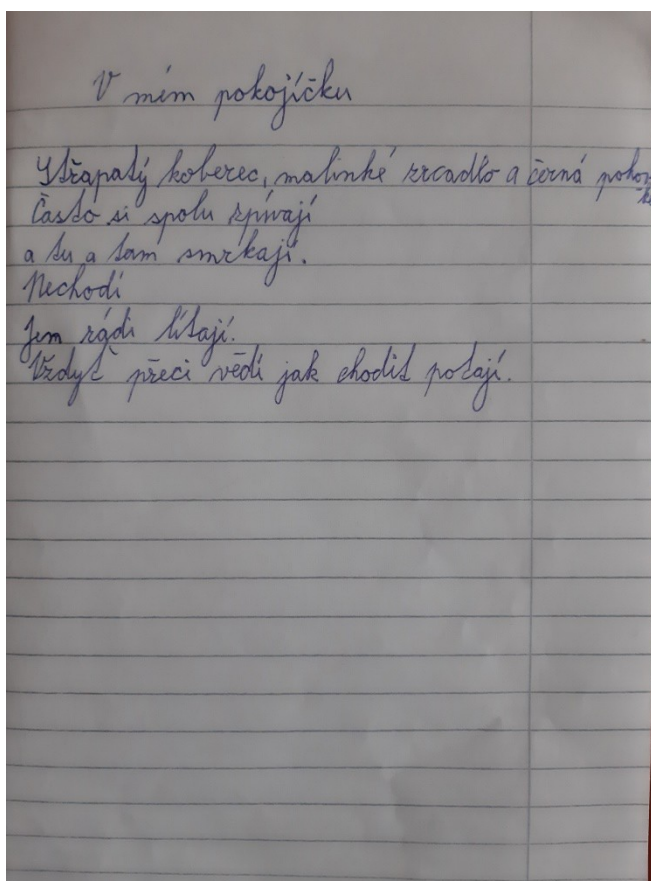 V mém pokojíčku
Střapatý koberec, malinké zrcadlo a černá pohov
ka
Často si spolu zpívají
a tu a tam smrkají.
Nechodí
Jen rádi lítají.
Vždyť přeci vědí jak chodit potají.